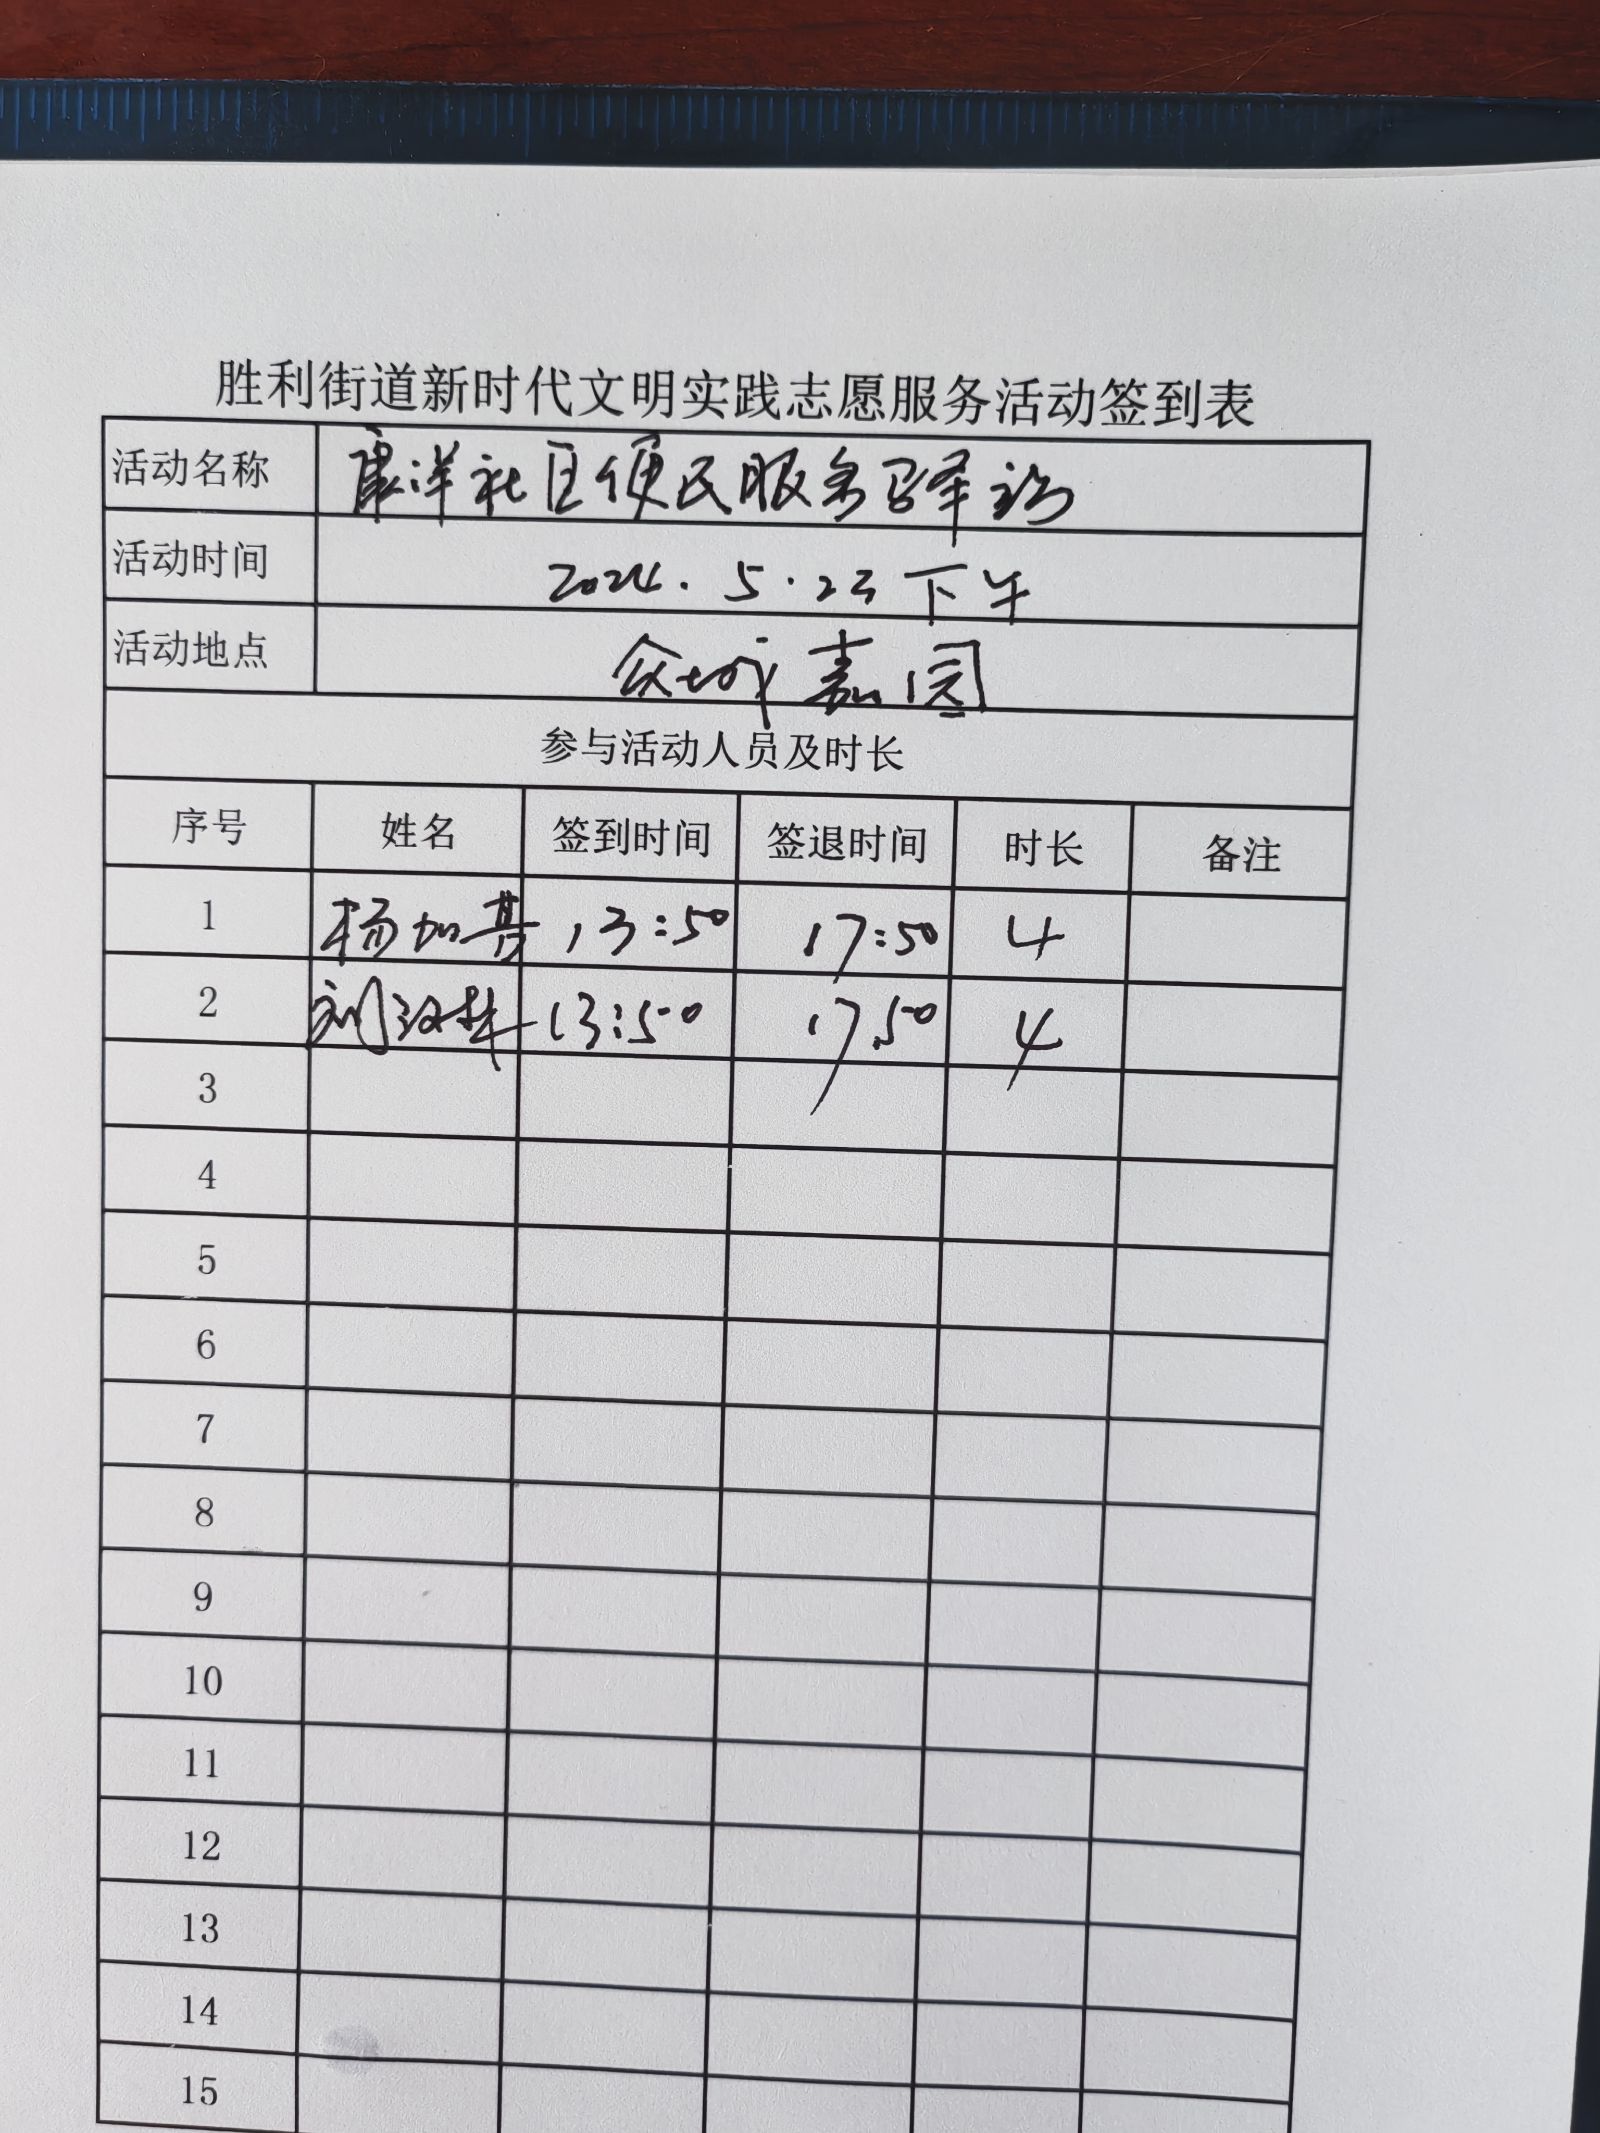 胜利街道新时代文明实践志愿服务活动签到表
活动名称 康洋社区便民服务驿站
活动时间 2024.5.23下午
活动地点 众城嘉园
参与活动人员及时长
序号 姓名 签到时间 签退时间 时长 备注
1 杨加 13:50 17:50 4
2 刘汉林 13:50 17.50 4
3
4
5
6
7
8
9
10
11
12
13
14
15